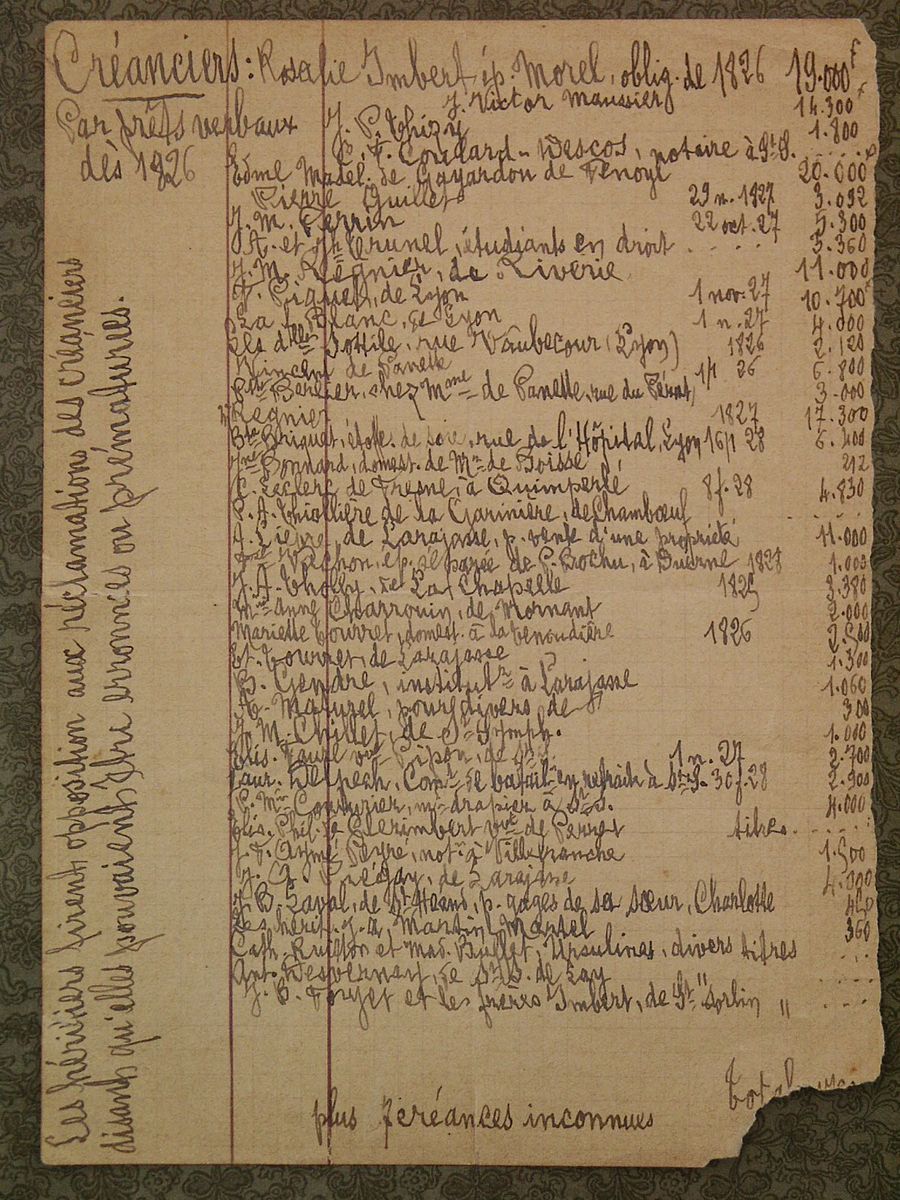 Créanciers: Rosalie Imbert ép. Morel, oblig. de 1826 19.000f
J. Victor Maussier 14.300f
Par prêts verbaux J. P. Thizy 1.800
dès 1826 J. F. Coulard-Descos, notaire à St S. ....
Edme Madel. de Gayardon de Fenoyl 20.000
Pierre Guillet 29 n. 1827 3.092
J. M. Perrin 22 oct. 27 5.300
J. A. et Brunel, étudiants en droit .... 3.360
J. M. Régnier, de Riverie 11.000
Piguet, de Lyon 1 nov. 27 10.700f
Blanc, de Lyon 1 n. 27 4.000
Les dlles Sottile, rue Vaubecour (Lyon) 1826 2.120
Vincent de Panette 26 6.800
chez Mme de Panette, rue du Pérat, 3.000
Régnier 1827 17.300
Briquet, étoffes de soie, rue de l'Hôpital, Lyon 16/1 28 6.400
Bonnard, domest. de Mr de Boisse 212
C. Leclerc de Fresne, à Quimperlé 8 f. 28 4.830
P. A. Thiollière de la Garinière, de Chambœuf ....
de Larajasse, p. vente d'une propriété 11.000
Vachon, ép. séparée de P. Bochu, à Duerne 1828 1.003
J. A. Tholly, de La Chapelle 3.380
Mme Anne Charrouin, de Mornant 2.000
Mariette Tourret, domest. à la Venoudière 1826 2.500
Et. Tourret, de Larajasse 1.300
B. Gendre, institutr à Larajasse 1.060
Maturel, pour divers de 300
J. M. Chillet, de St Symph. 1.000
Elis. Faure vve Pizon, de 1 n. 27 2.700
Laur. Delpech, Comt de batailn en retraite à St S. 30 f. 28 2.900
Couturier, md drapier à St S. 4.000
Elis. Phil. de Clerimbert vve de Ferret titres. ....
Aymé Peyré, notre à Villefranche 1.500
de Larajasse 4.000
J. B. Laval, de St Haand, p. gages de sa sœur, Charlotte
Les hérit. Martin Martel 360
Cath. Rullion et Mad. Bullet, Ursulines, divers titres ...
Ant. Desvernay, de St S. de Lay " ....
J. C. Toujet et les frères Imbert, de St Sorlin " ....
plus créances inconnues
Les héritiers firent opposition aux réclamations des créanciers
disant qu'elles pouvaient être erronnées ou prématurées.